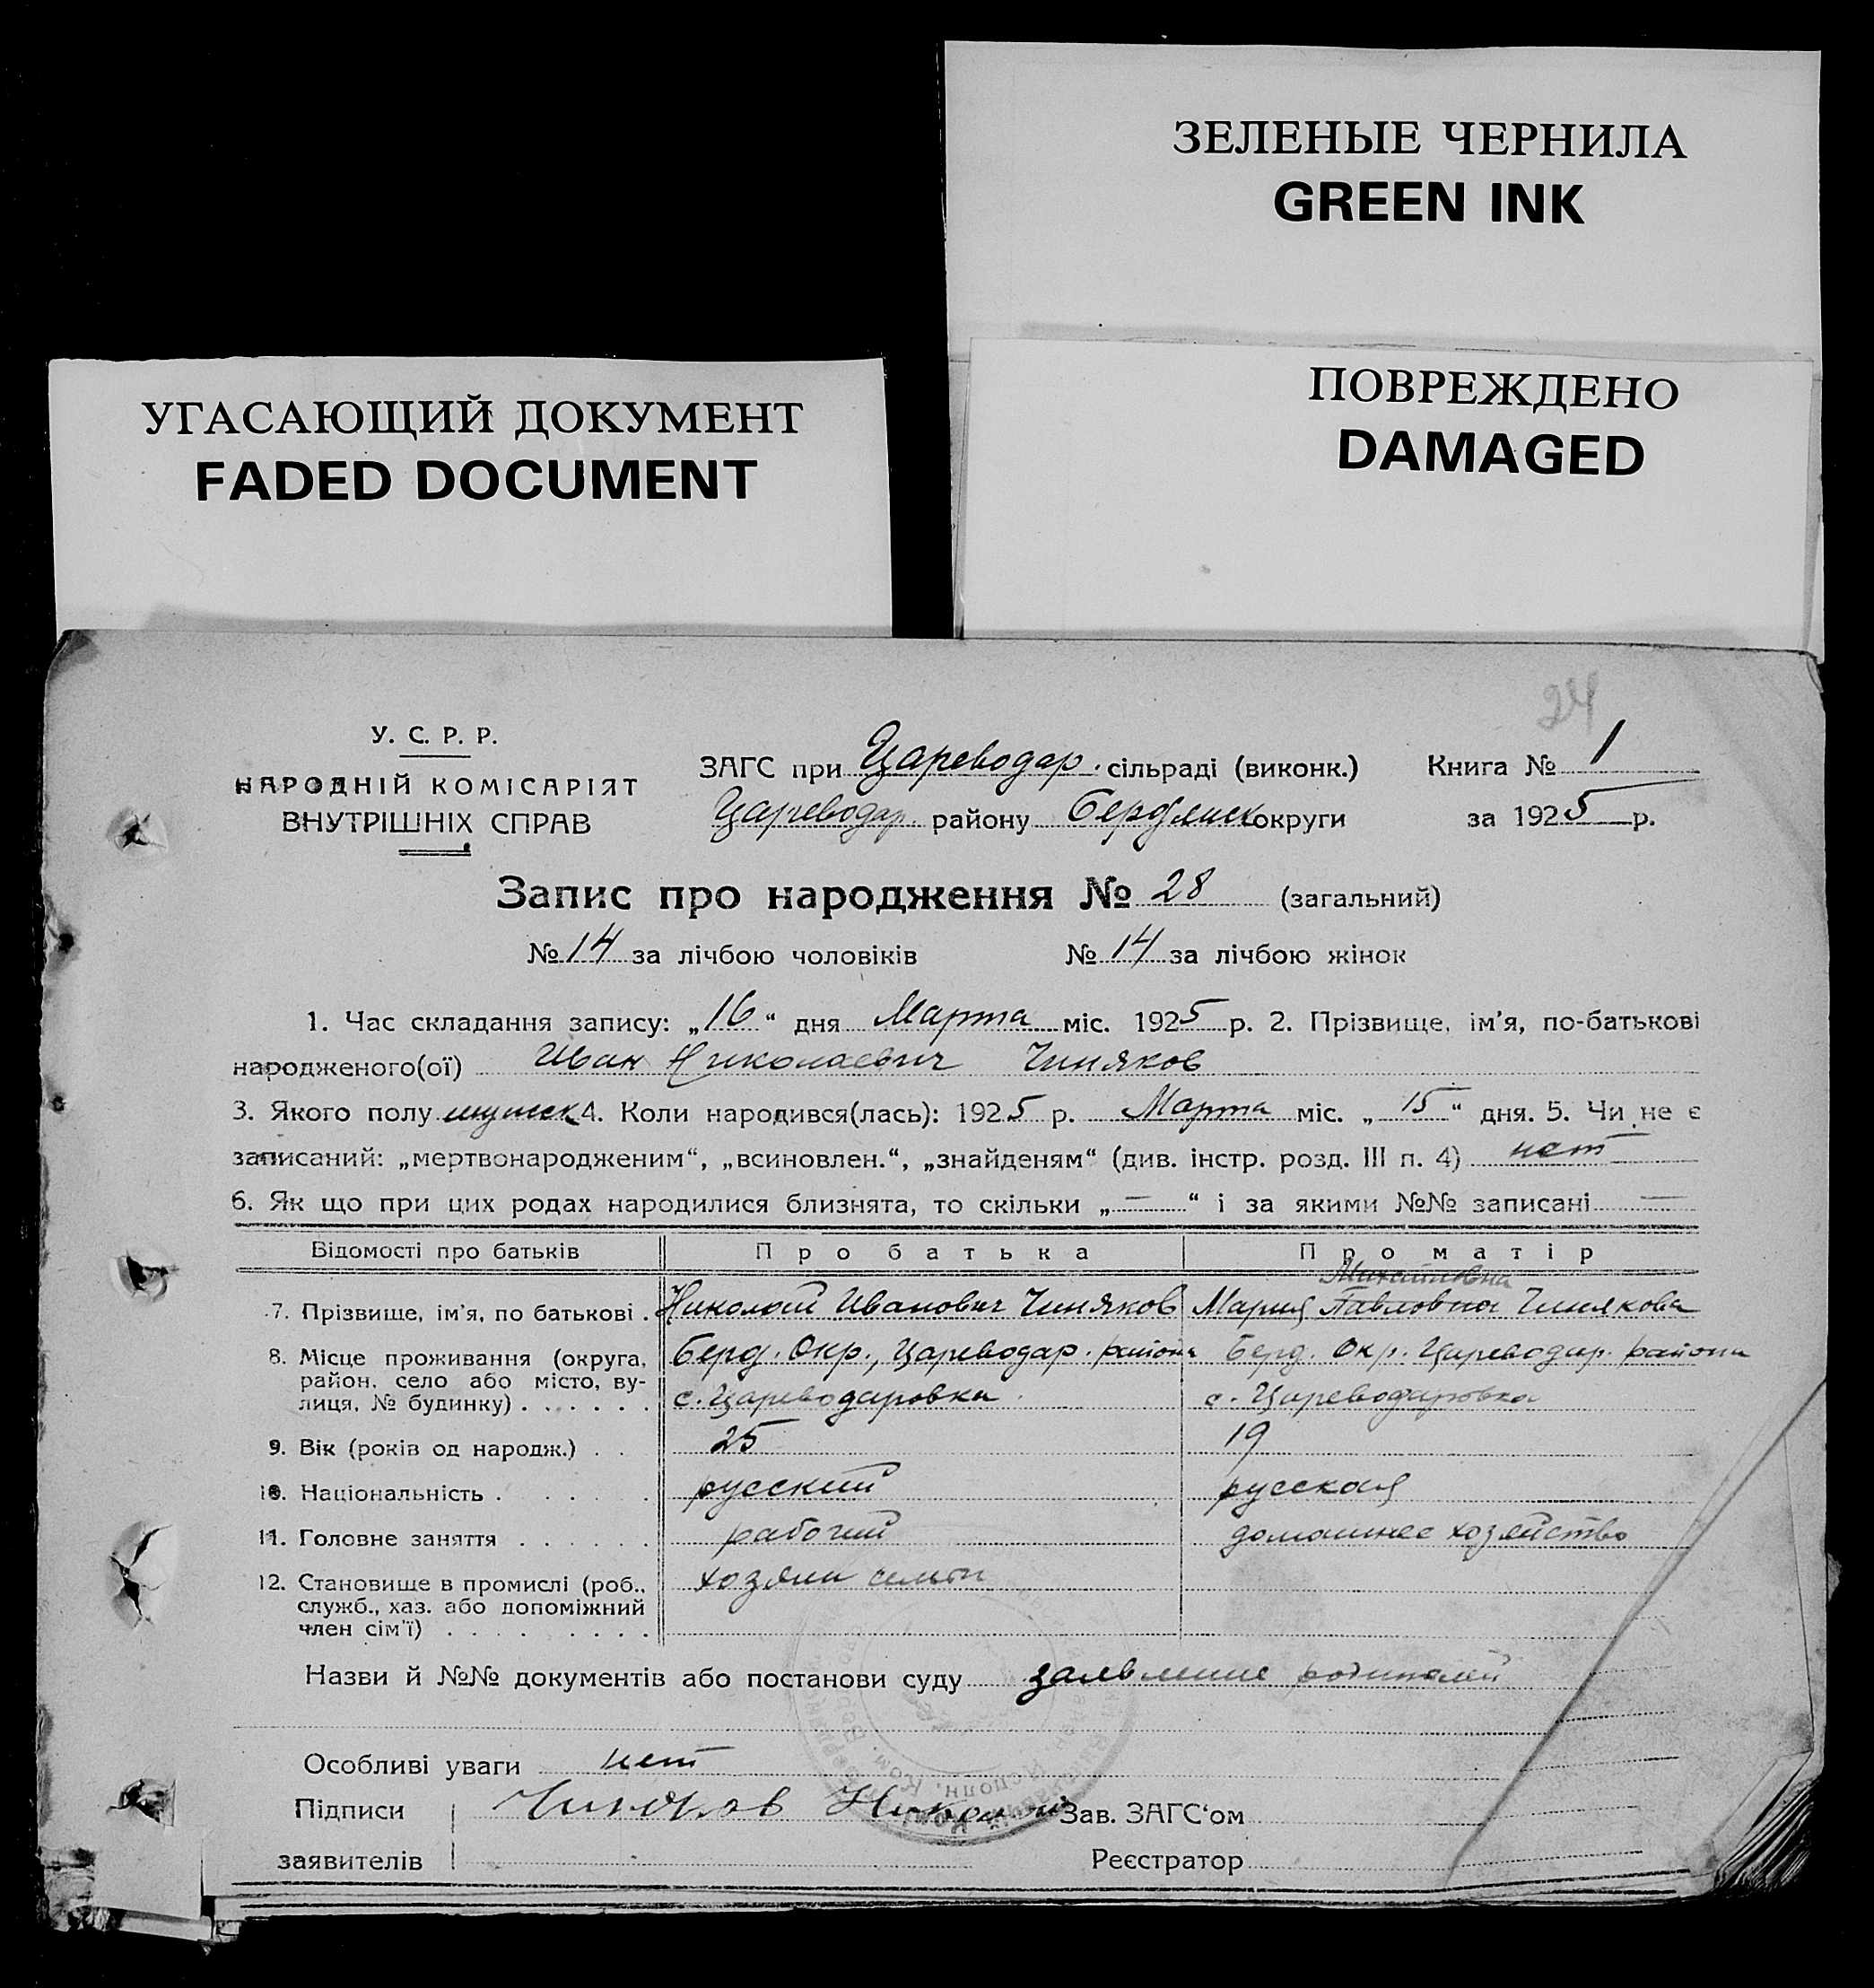 ЗЕЛЕНЫЕ ЧЕРНИЛА
GREEN INK
ПОВРЕЖДЕНО
DAMAGED
УГАСАЮЩИЙ ДОКУМЕНТ
FADED DOCUMENT
24
У. С. Р. Р.
НАРОДНІЙ КОМІСАРІЯТ
ВНУТРІШНІХ СПРАВ
ЗАГС при Цареводар. сільраді (виконк.) Книга № 1
Цареводар. району Бердянск округи за 1925 р.
Запис про народження № 28 (загальний)
№ 14 за лічбою чоловіків № 14 за лічбою жінок
1. Час складання запису: „16“ дня Марта міс. 1925 р. 2. Прізвище, ім'я, по-батькові
народженого(ої) Иван Николаевич Чиняков
3. Якого полу мужск 4. Коли народився(лась): 1925 р. Марта міс. „15“ дня. 5. Чи не є
записаний: „мертвонародженим“, „всиновлен.“, „знайденям“ (див. інстр. розд. III п. 4) нет
6. Як що при цих родах народилися близнята, то скільки „—“ і за якими №№ записані —
Відомості про батьків Про батька Про матір
Михайловна
7. Прізвище, ім'я, по батькові . Николай Иванович Чиняков Мария Павловна Чинякова
8. Місце проживання (округа, Берд. Окр., Цареводар. района Берд. Окр. Цареводар. района
район, село або місто, ву-
лиця, № будинку) . . . . . . с. Цареводаровка с. Цареводаровка
9. Вік (років од народж.) . . 25 19
10. Національність . . . . . русский русская
11. Головне заняття . . . . . . рабочий домашнее хозяйство
12. Становище в промислі (роб., хозяин семьи
служб., хаз. або допоміжний
член сім'ї) . . . . . . . . .
Назви й №№ документів або постанови суду заявление родителей
Особливі уваги нет
Підписи Чиняков Николай Зав. ЗАГС'ом
заявителів Реєстратор